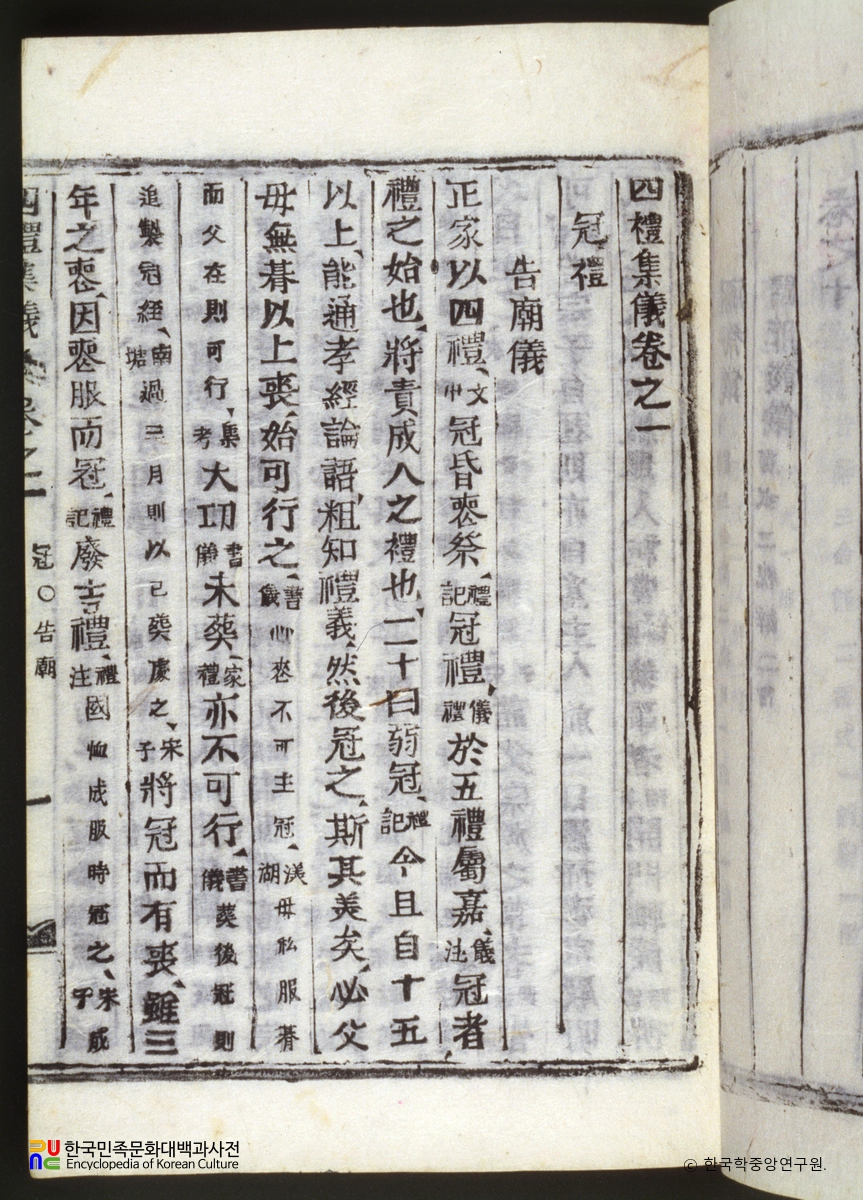 四禮集儀卷之一
冠禮
告廟儀
正家以四禮文中冠昏喪祭禮記冠禮儀禮於五禮屬嘉儀注冠者
禮之始也將責成人之禮也二十曰弱冠禮記今且自十五
以上能通孝經論語粗知禮義然後冠之斯其美矣必父
母無朞以上喪始可行之書儀心喪不可主冠渼湖母私服朞
而父在則可行集考大功書儀未葬家禮亦不可行書儀葬後冠則
追製冠絰南塘過三月則以已葬處之宋子將冠而有喪雖三
年之喪因喪服而冠禮記廢吉禮禮注國恤成服時冠之宋子成
四禮集儀 卷之一 冠○告廟 一
한국민족문화대백과사전
Encyclopedia of Korean Culture
ⓒ 한국학중앙연구원.